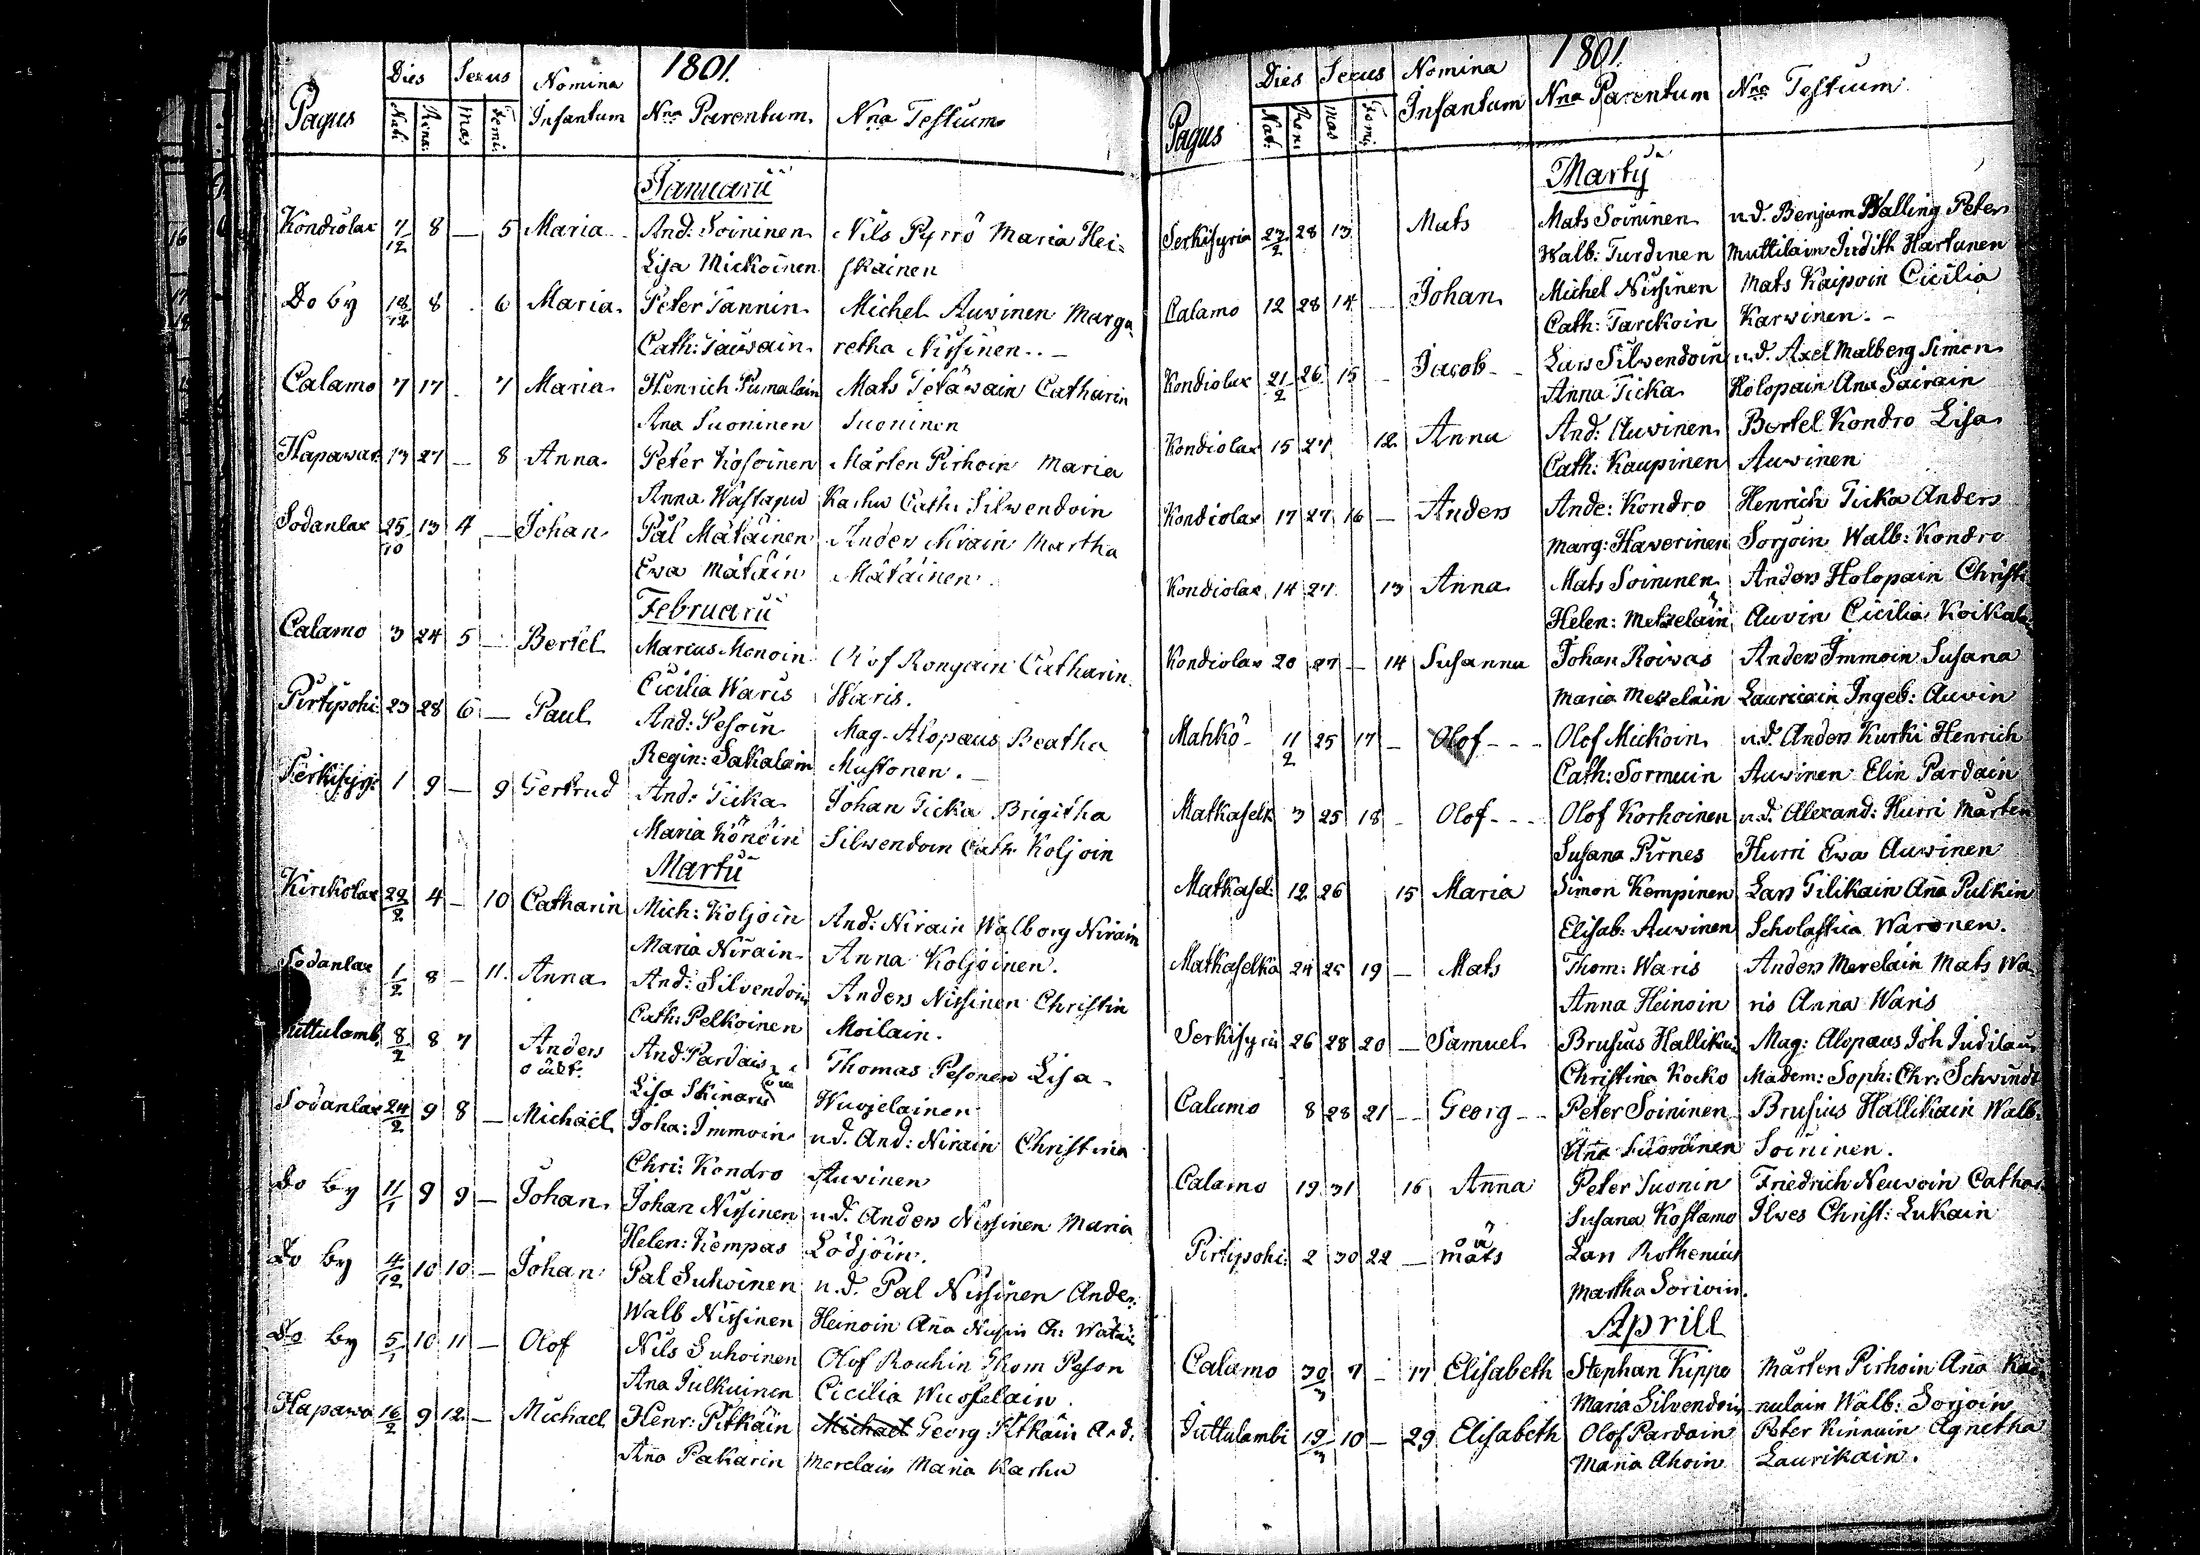 1801.
Pagus Dies Sexus Nomina Infantum Nna Parentum Nna Testium
Nat: Rena: Mas Femi:
Januarii
Kondiolax 7/12 8 — 5 Maria And: Soininen Nils Pyrrö Maria Hei=
Lisa Mickoinen skainen
Do by 18/12 8 6 Maria Peter Tannin Michel Auvinen Marga
retha Nissinen. —
Calamo 7 17 7 Maria Henrich Pumalain Mats Catharin
Ana Suoninen Suoninen
Hapawar 13 27 — 8 Anna Peter Kosoinen Mårten Pirhoin Maria
Anna Karhu Cath: Silwendoin
Sodanlax 25/10 13 4 — Johan Pål Mätäinen Anders Nirain Martha
Ewa Mätäin Mätäinen.
Februarii
Calamo 3 24 5 — Bertel Marcus Monoin Olof Rongain Catharin
Cicilia Waris Waris.
Pirtipohi 23 28 6 — Paul And: Pesoin Mag. Alopæus Beatha
Regin: Sakalain Mustonen. —
Serkisyri 1 9 — 9 Gertrud And: Ticka Johan Ticka Brigitha
Maria Könöin Silwendoin Cath: Koljoin
Martii
Kirckolax 22/2 4 — 10 Catharin Mich: Koljoin And: Nirain Walborg Nirain
Maria Nirain Anna Koljoinen.
Sodanlax 1/2 8 — 11. Anna And: Silvendoin Anders Nissinen Christin
Cath: Pelkoinen Moilain.
uttulamb. 8/2 8 7 Anders And: Pardain Thomas Pesonen Lisa
oäkt. Lisa Skinari Wuojelainen
Sodanlax 24/2 9 8 — Michaël Joha: Immoin u.d. And: Nirain Christina
Chri: Kondro Auvinen
Do by 11/1 9 9 — Johan Johan Nissinen u.d. Anders Nissinen Maria
Helen: Kempas Lödjöin.
Do by 4/12 10 10 — Johan Pal Suhoinen u.d. Pal Nissinen Ander:
Walb Nissinen Heinoin Aña
Do by 5/1 10 11 — Olof Nils Suhoinen Olof Rouhin Thom Peson
Ana Julkuinen Cicilia
Hapawa 16/2 9 12 — Michael Henr: Pitkäin Michael Georg Pitkäin And.
Aña Pakarin Merelain Maria Karhu
1801.
Pagus Dies Sexus Nomina Infantum Nna Parentum Nna Testium
Nat: Rena Mas Femi
Martij
Serkisyria 27/2 28 13 Mats Mats Soininen u.d. Benjam Walling Peter
Walb: Turdinen Muttilain Judith Hartunen
Calamo 12 28 14 — Johan Michel Nissinen Mats Kaipoin Cicilia
Cath: Tarckoin Karwinen. —
Kondiolax 21/2 26 15 — Jacob Lars Silwendoin u.d. Axel Malberg Simon
Anna Ticka Holopain Ana Sairain
Kondiolax 15 27 12 Anna And: Auvinen Bertel Kondro Lisa
Cath: Kaupinen Auvinen
Kondiolax 17 27 16 — Anders Ande: Kondro Henrich Ticka Anders
Marg: Haverinen Sorjoin Walb: Kondro
Kondiolax 14 27 13 Anna Mats Soininen Anders Holopain Christi
Helen: Metzeläin Auvin Cicilia Koikala
Kondiolax 20 27 — 14 Susanna Johan Roivas Anders Immoin Susana
Maria Metzeläin Lauricain Ingeb: Auvin
Mahkö 11/2 25 17 — Olof Olof Mickoin u.d. Anders Kurki Henrich
Cath: Sormuin Auvinen Elin Pardain
Matkaselk 3 25 18 — Olof Olof Korhoinen u.d. Alexand: Hurri Mårten
Susana Pirnes Hurri Ewa Auvinen
Matkasel: 12 26 15 Maria Simon Kempinen Lars Tilikain Aña Pulkin
Elisab: Auvinen Scholastica Waronen.
Matkaselkä 24 25 19 — Mats Thom: Waris Anders Merelain Mats Wa
Anna Heinoin ris Anna Waris
Serkisyri 26 28 20 — Samuel Brusius Hallikain Mag: Alopæus Joh
Christina Kocko Madem: Soph: Chr: Schvindt
Calamo 8 28 21 — Georg Peter Soininen Brusius Hallikain Walb.
Aña Suoninen Soininen.
Calamo 19 31 16 Anna Peter Suonin Friedrich Neuvoin Catha
Susana Kostamo Ilves Christ: Lukain
Pirtipohi: 2 30 22 — Mats Lars Rothenius
Martha Sorivoin.
Aprill
Calamo 30/3 7 — 17 Elisabeth Stephan Kippo Mårten Pirhoin Aña
Maria Silvendoin nulain Walb: Sorjoin
Juttulambi 19/3 10 — 29 Elisabeth Olof Pardain Peter Kinnuin Agnetha
Maria Ahoin Laurikain.